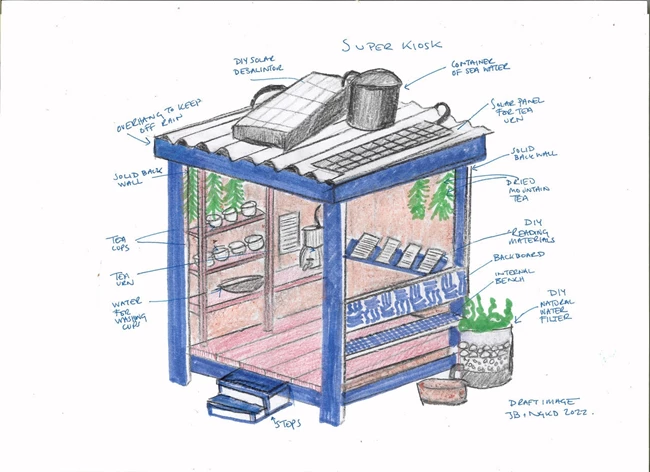 SUPER KIOSK
DIY SOLAR
DESALINTOR
CONTAINER
OF SEA WATER
OVERHANG TO KEEP
OFF RAIN
SOLAR PANEL
FOR TEA
URN
SOLID BACK
WALL
SOLID
BACK WALL
DRIED
MOUNTAIN
TEA
TEA
CUPS
DIY
READING
MATERIALS
BACKBOARD
TEA
URN
INTERNAL
BENCH
WATER
FOR
WASHING
CUPS
DIY
NATURAL
WATER
FILTER
STEPS
DRAFT IMAGE
2022.